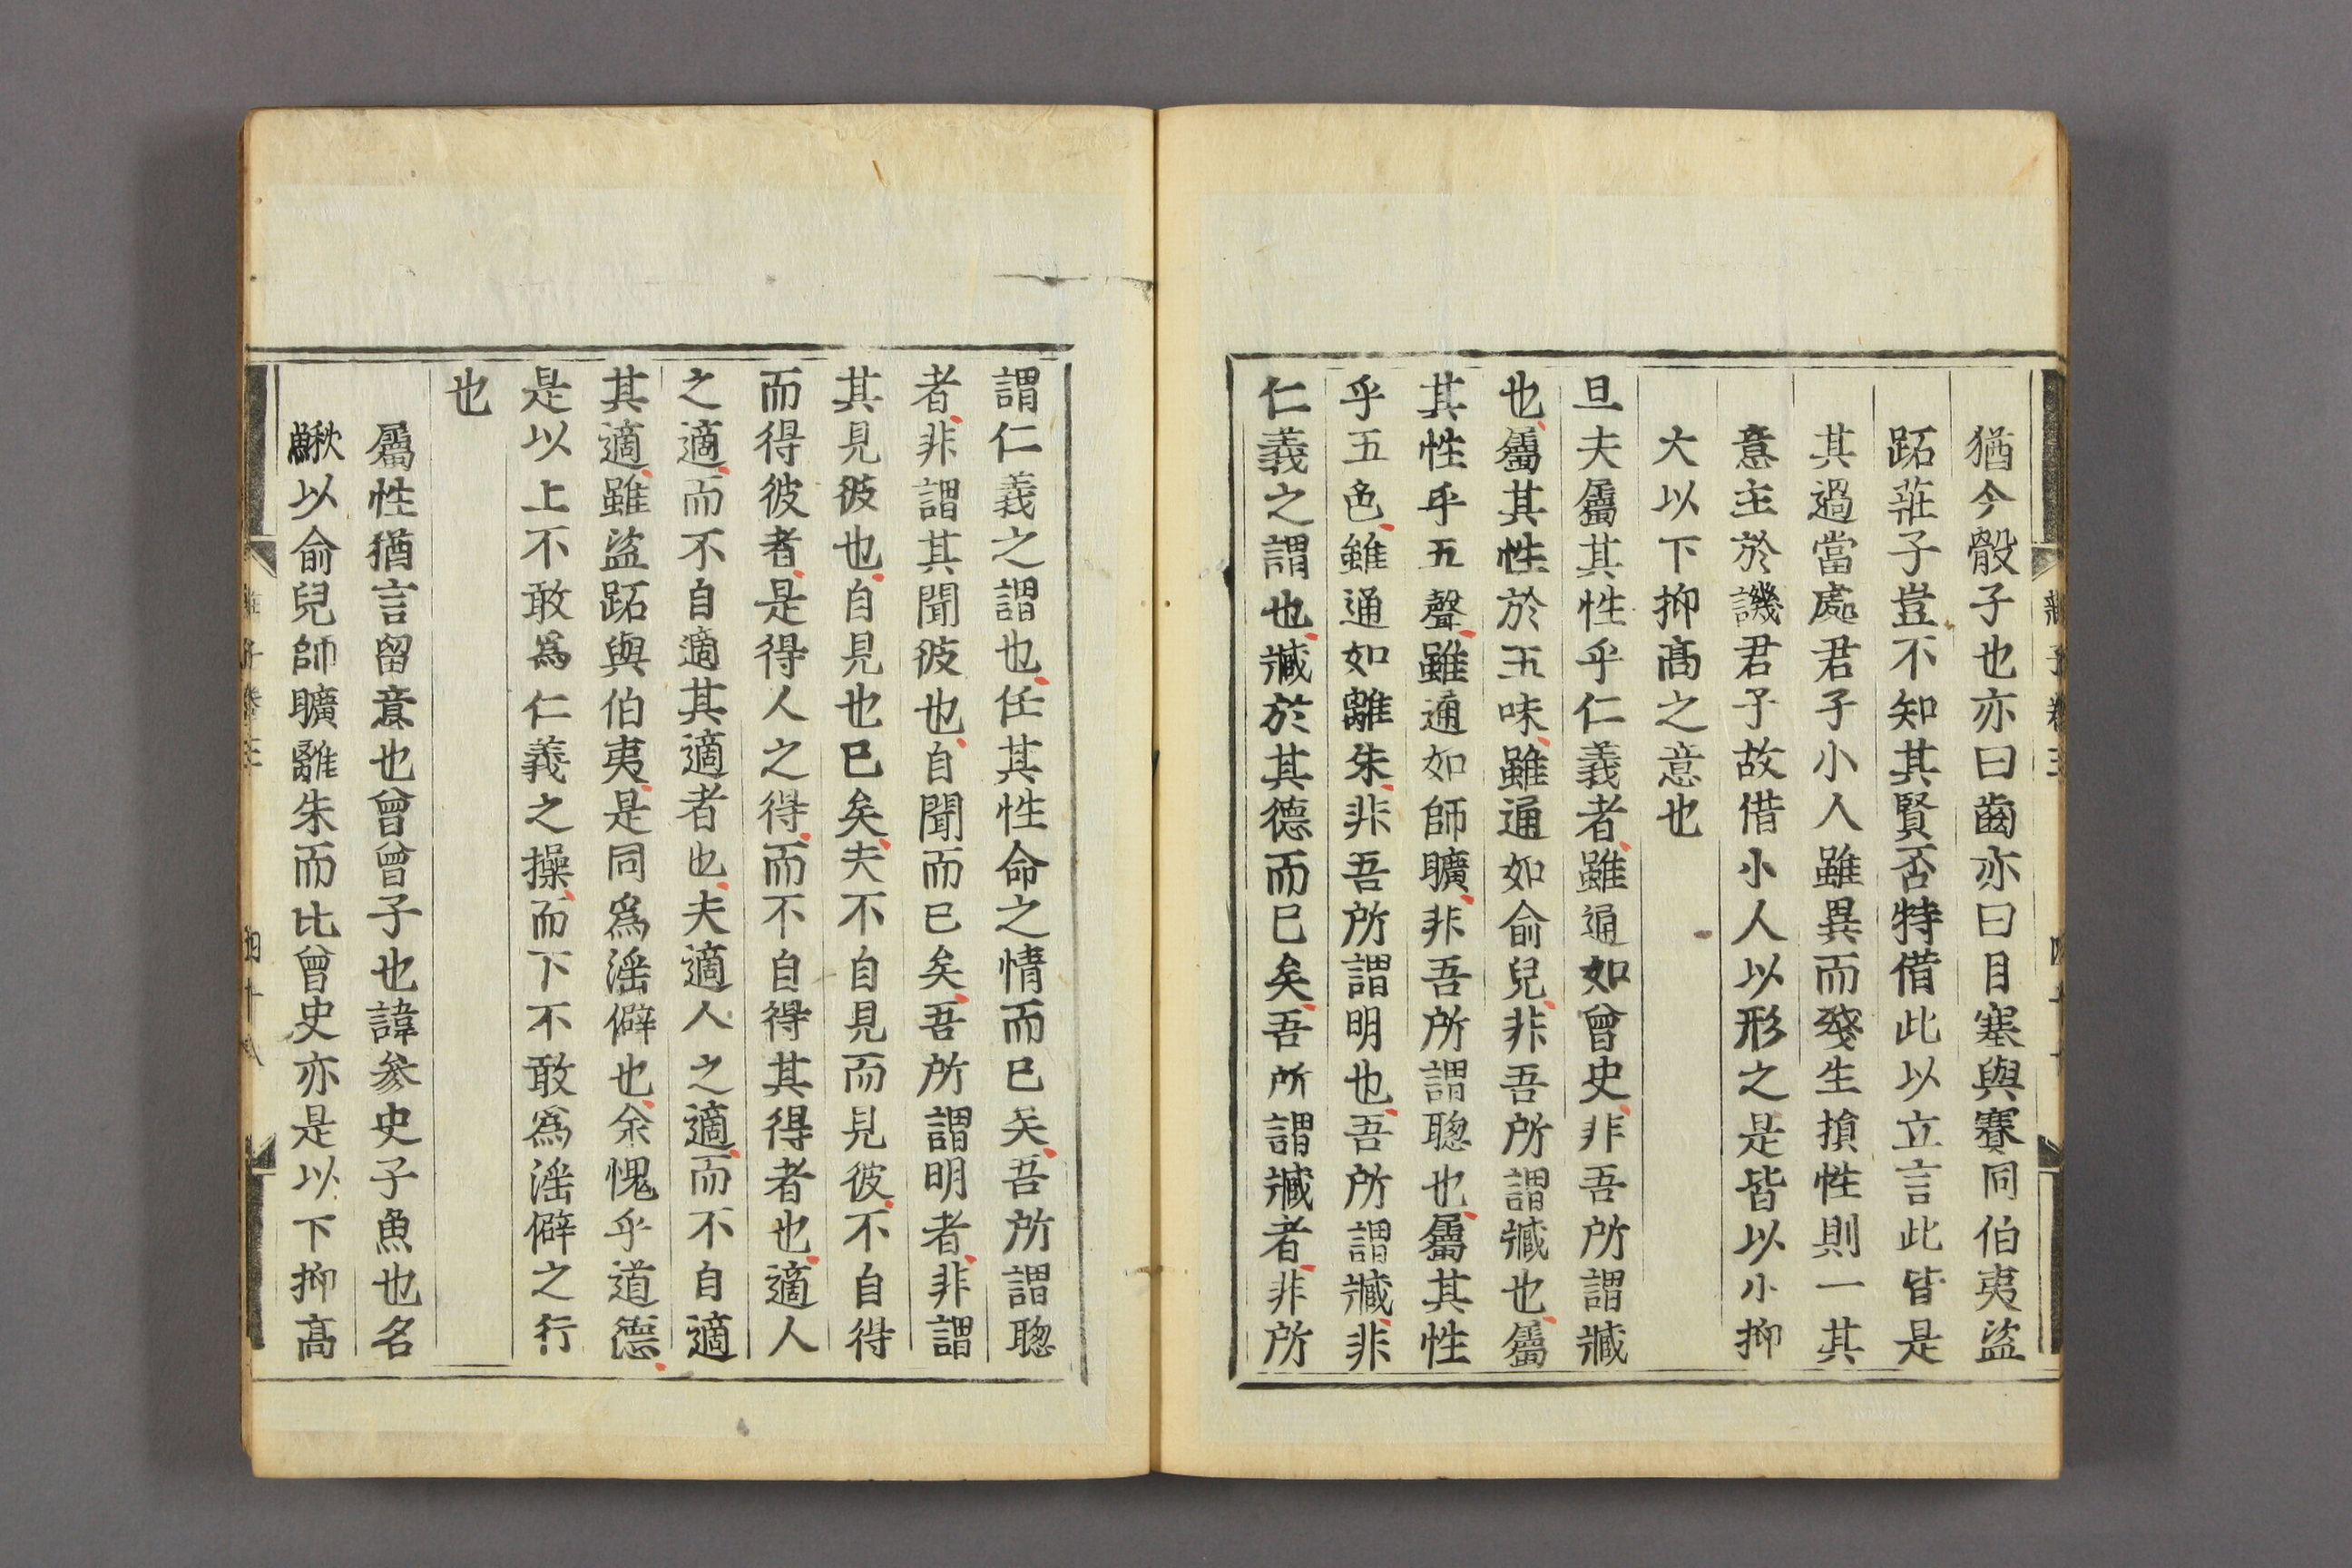 猶今骰子也亦曰齒亦曰目塞與賽同伯夷盜
跖莊子豈不知其賢否特借此以立言此皆是
其過當處君子小人雖異而殘生損性則一其
意主於譏君子故借小人以形之是皆以小抑
大以下抑髙之意也
且夫屬其性乎仁義者雖通如曾史非吾所謂臧
也屬其性於五味雖通如俞兒非吾所謂臧也屬
其性乎五聲雖通如師曠非吾所謂聰也屬其性
乎五色雖通如離朱非吾所謂明也吾所謂臧非
仁義之謂也臧於其德而巳矣吾所謂臧者非所
謂仁義之謂也任其性命之情而巳矣吾所謂聰
者非謂其聞彼也自聞而巳矣吾所謂明者非謂
其見彼也自見也巳矣夫不自見而見彼不自得
而得彼者是得人之得而不自得其得者也適人
之適而不自適其適者也夫適人之適而不自適
其適雖盜跖與伯夷是同爲淫僻也余愧乎道德
是以上不敢爲仁義之操而下不敢爲淫僻之行
也
屬性猶言留意也曾曾子也諱參史子魚也名
鰍以俞兒師曠離朱而比曾史亦是以下抑髙
莊子卷三
四十八